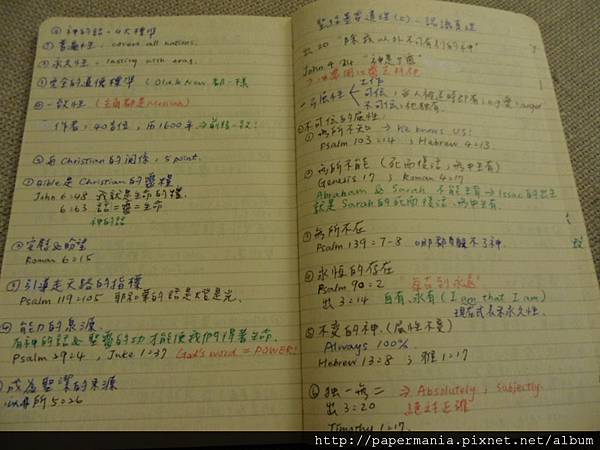 ④ 神的話・4大標準
① 普遍性：covers all nations.
② 永久性：lasting with eras.
③ 完全的道德標準 (Old & New 都一樣
④ 一致性 (主角都是Messiah)
作者：40多位，历1600年→前後一致!
⑤ 與 Christian 的関係，5 point.
① Bible 是 Christian 的靈糧
John 6:48 我就是生命的糧.
6:63 話=靈=生命
神的話
Roman 6:15
③ 引導走天路的指標
Psalm 119:105 耶和華的話是燈是光.
④ 能力的泉源.
有神的話&聖靈的功才能使我們得著生命.
Psalm 29:4 , Luke 1:37 God's word = POWER!
⑤ 成為聖潔的來源
所 5:26
出 20 "除我以外不可有別的神"
John 4:24 "神是个靈"
工作
可信，
不可信，
不可信的属性.
① 無所不知 → He knows US!
Psalm 103:14 ; Hebrew 4:13.
② 無所不能 (死而復活，無中生有)
Genesis 17 ; Roman 4:17
Abraham & Sarah 不能生育→Issac的出生
就是Sarah的死而復活,無中生有.
③ 無所不在
Psalm 139:7-8 哪都躲不了神.
④ 永恆的存在
Psalm 90:2 "亙古到永遠"
出 3:14 自有,永有 (I am that I am)
現在式表永久性.
⑤ 不変的神. (属性不変)
Always 100%.
Hebrew 13:8 ; 雅 1:17
⑥ 独一無二 → Absolutely ; Subjectly.
出 3:20 絕対主権
Timothy 1:17.
http://papermania.pixnet.net/album